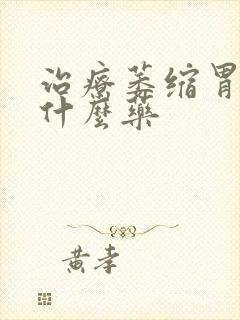 治疗萎缩胃
什麼藥
黄孝